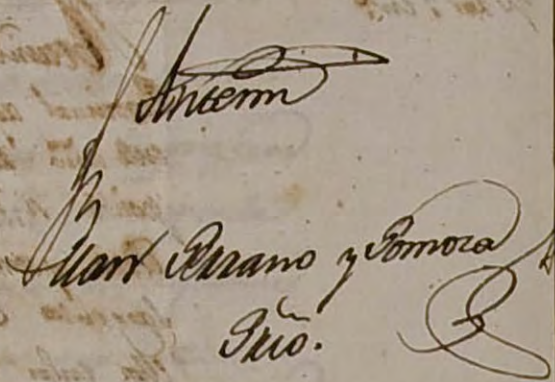 Ante mi
Juan Serrano y Somoza
Srio.